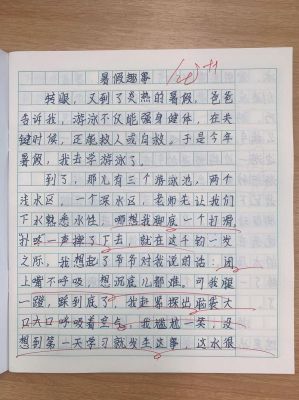 暑假趣事
转眼，又到了炎热的暑假，爸爸
告诉我，游泳不仅能强身健体，在关
键时候，还能救人或自救。于是今年
暑假，我去学游泳了。
到了，那儿有三个游泳池，两个
浅水区，一个深水区，老师先让我们
下水熟悉水性，哪想我脚底一个打滑，
扑咚一声摔了下去，就在这千钧一发
之际，我想起了爷爷对我说的话：闭
上嘴不呼吸，想沉底儿都难。可我猛
一蹬，踩到底了，我赶紧探出脑袋大
口大口呼吸着空气，我尴尬一笑，没
想到第一天学习就发生这事，这水很